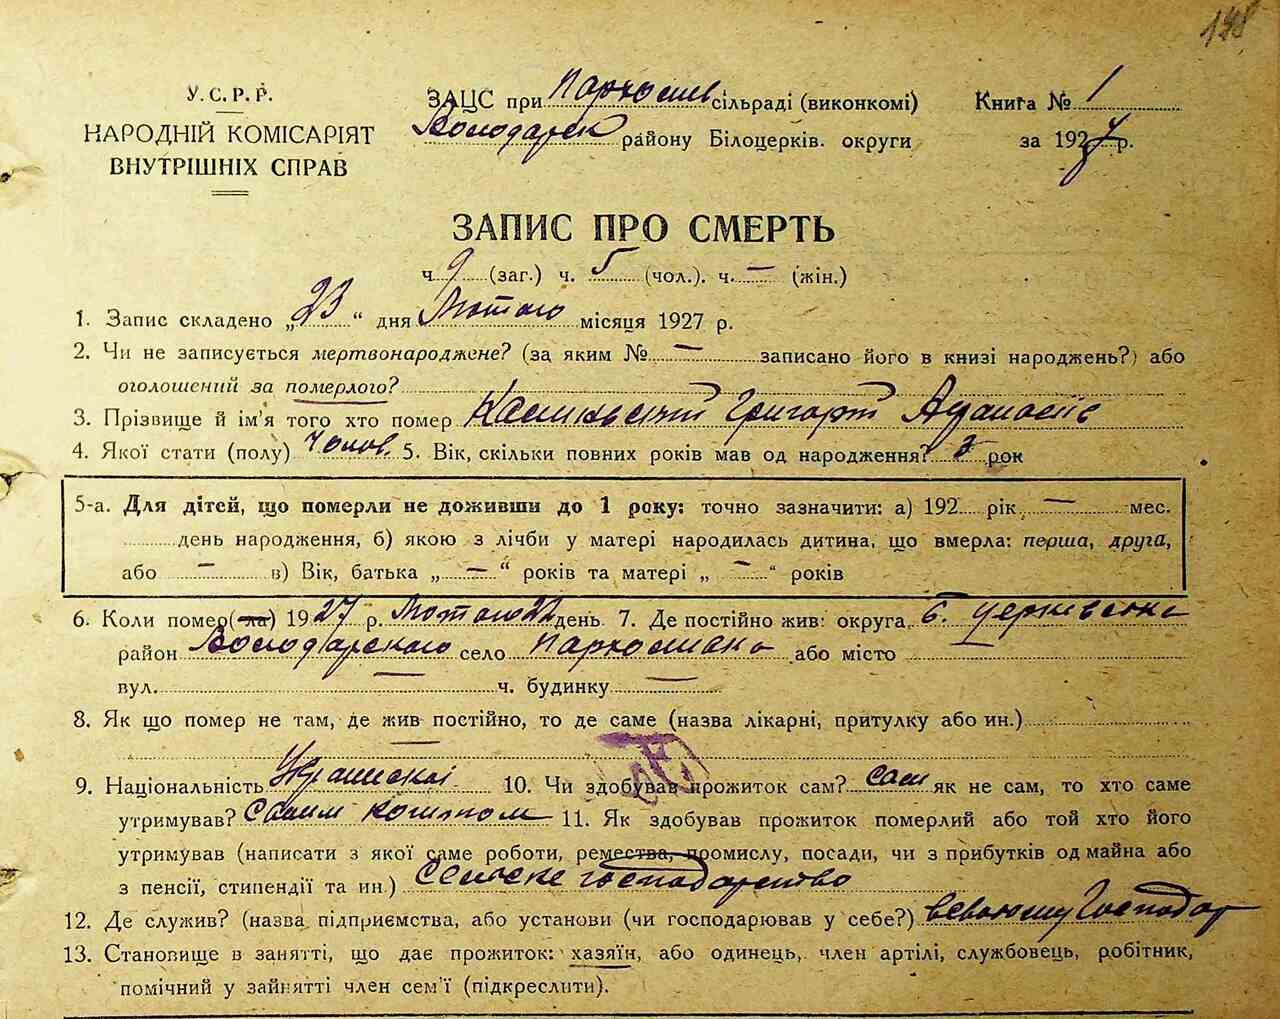 198
У.С.Р.Р.
НАРОДНІЙ КОМІСАРІЯТ
ВНУТРІШНІХ СПРАВ
ЗАЦС при Пархомів сільраді (виконкомі)
Володарск району Білоцерків. округи
Книга № 1
за 1927 р.
ЗАПИС ПРО СМЕРТЬ
ч 9 (заг.) ч. 5 (чол.). ч. — (жін.)
1. Запис складено „23“ дня Лютого місяця 1927 р.
2. Чи не записується мертвонароджене? (за яким № — записано його в книзі народжень?) або
оголошений за померлого?
3. Прізвище й ім'я того хто помер Григорій Афанасів
4. Якої стати (полу) Чолов. 5. Вік, скільки повних років мав од народження? рок
5-а. Для дітей, що померли не доживши до 1 року: точно зазначити: а) 192 рік — мес.
день народження, б) якою з лічби у матері народилась дитина, що вмерла: перша, друга,
або — в) Вік, батька „ — “ років та матері „ — “ років
6. Коли помер(ла) 1927 р. Лютого 22 день. 7. Де постійно жив: округа Б. Церківська
район Володарского село Пархомівка або місто
вул. — ч. будинку —
8. Як що помер не там, де жив постійно, то де саме (назва лікарні, притулку або ин.)
9. Національність Українскої 10. Чи здобував прожиток сам? сам як не сам, то хто саме
утримував? Своим коштом 11. Як здобував прожиток померлий або той хто його
утримував (написати з якої саме роботи, ремества, промислу, посади, чи з прибутків од майна або
з пенсії, стипендії та ин.) Сельске господарство
12. Де служив? (назва підприємства, або установи (чи господарював у себе?) всвоєму господар
13. Становище в занятті, що дає прожиток: хазяїн, або одинець, член артілі, службовець, робітник,
помічний у зайнятті член сем'ї (підкреслити).